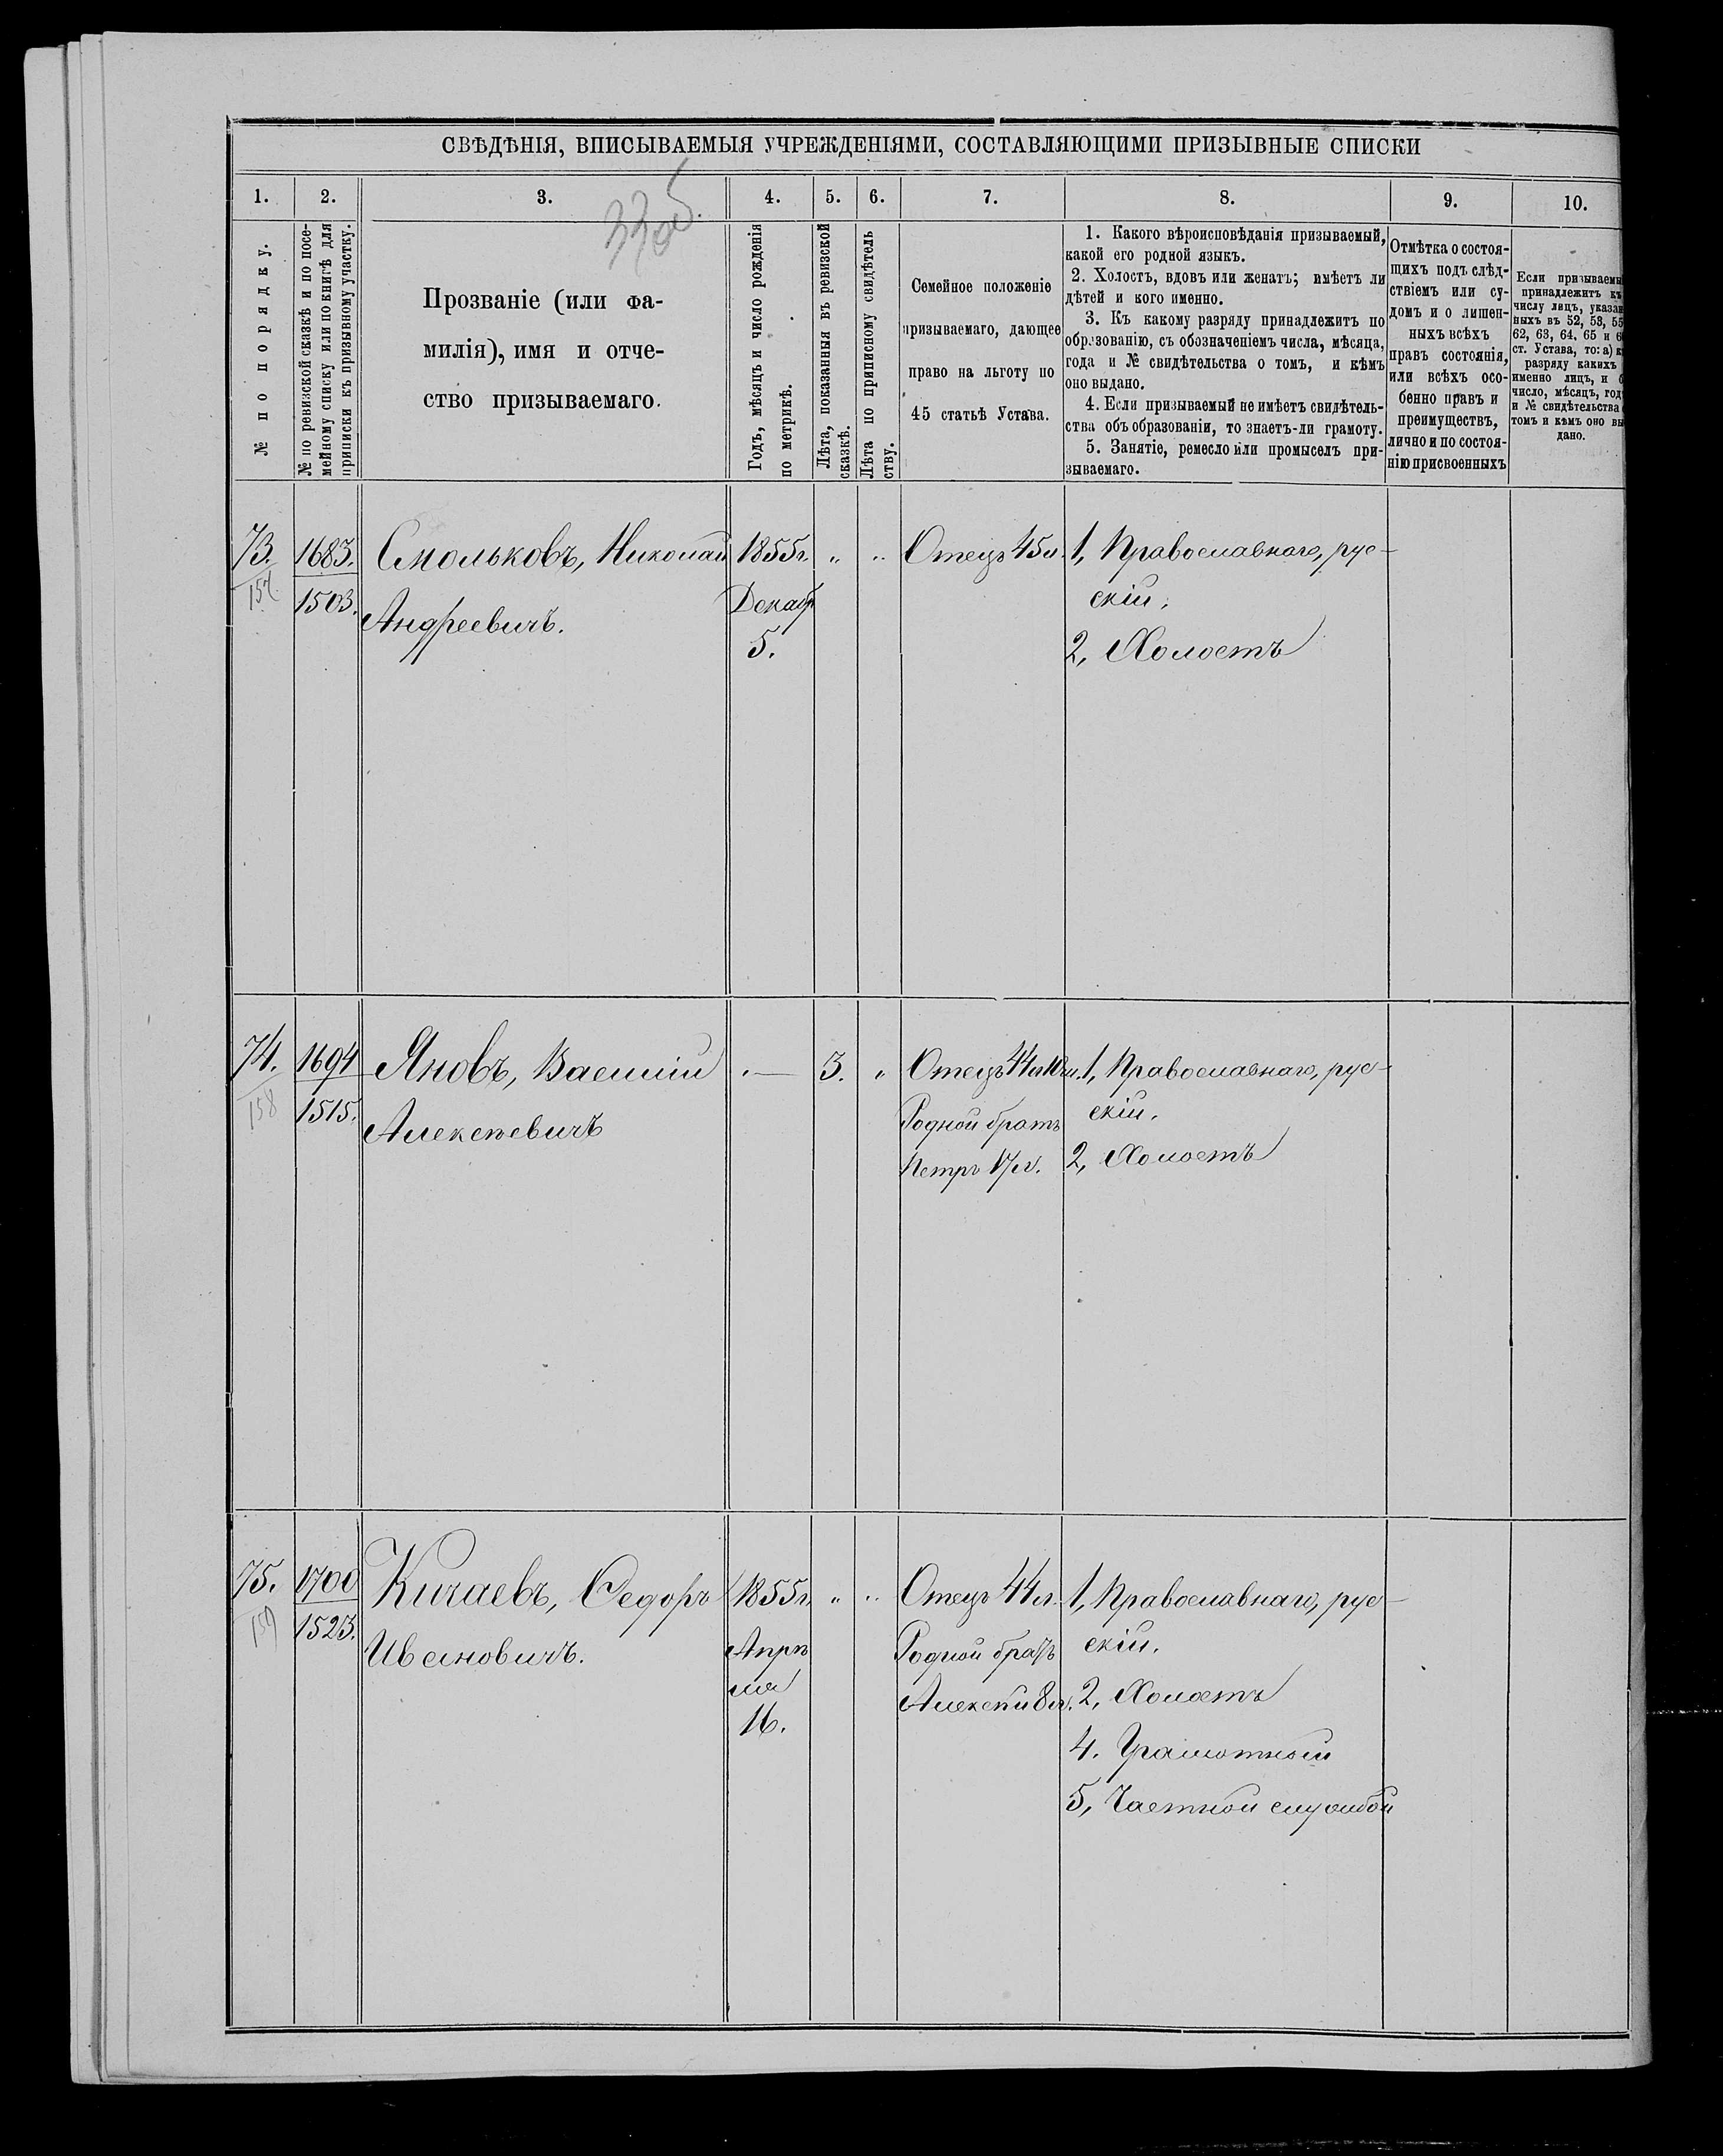 СВѢДѢНІЯ, ВПИСЫВАЕМЫЯ УЧРЕЖДЕНІЯМИ, СОСТАВЛЯЮЩИМИ ПРИЗЫВНЫЕ СПИСКИ
1. 2. 3. 4. 5. 6. 7. 8. 9. 10.
33об.
№ по порядку.
№ по ревизской сказкѣ и по посе-
мейному списку или по книгѣ для
приписки къ призывному участку.
Прозваніе (или фа-
милія), имя и отче-
ство призываемаго.
Годъ, мѣсяцъ и число рожденія
по метрикѣ.
Лѣта, показанныя въ ревизской
сказкѣ.
Лѣта по приписному свидѣтель
ству.
Семейное положеніе
призываемаго, дающее
право на льготу по
45 статьѣ Устава.
1. Какого вѣроисповѣданія призываемый,
какой его родной языкъ.
2. Холостъ, вдовъ или женатъ; имѣетъ ли
дѣтей и кого именно.
3. Къ какому разряду принадлежитъ по
образованію, съ обозначеніемъ числа, мѣсяца,
года и № свидѣтельства о томъ, и кѣмъ
оно выдано.
4. Если призываемый не имѣетъ свидѣтель-
ства объ образованіи, то знаетъ-ли грамоту.
5. Занятіе, ремесло или промыселъ при-
зываемаго.
Отмѣтка о состоя-
щихъ подъ слѣд-
ствіемъ или су-
домъ и о лишен-
ныхъ всѣхъ
правъ состоянія,
или всѣхъ осо-
бенно правъ и
преимуществъ,
лично и по состоя-
нію присвоенныхъ
Если призываемы
принадлежитъ къ
числу лицъ, указан
ныхъ въ 52, 53, 55
62, 63, 64, 65 и 6
ст. Устава, то: а) к
разряду какихъ
именно лицъ, и б
число, мѣсяцъ, год
и № свидѣтельства
томъ и кѣмъ оно вы
дано.
73. 1683. Смольковъ, Николай 1855г. „ „ Отецъ 45л. 1, Православнаго, рус-
157 1503. Андреевичъ. Декабр скій.
5. 2, Холостъ
74. 1694 Яновъ, Василій — 3. „ Отецъ 44л 10м. 1, Православнаго, рус-
158 1515. Алексѣевичъ Родной братъ скій.
Петръ 17л. 2, Холостъ
75. 1700 Кичаевъ, Ѳедоръ 1855г. „ „ Отецъ 44л. 1, Православнаго, рус-
159 1523. Ивановичъ. Апрѣ Родной братъ скій.
ля Алексѣй 8л. 2, Холостъ
16. 4. Грамотный
5, Частной службой